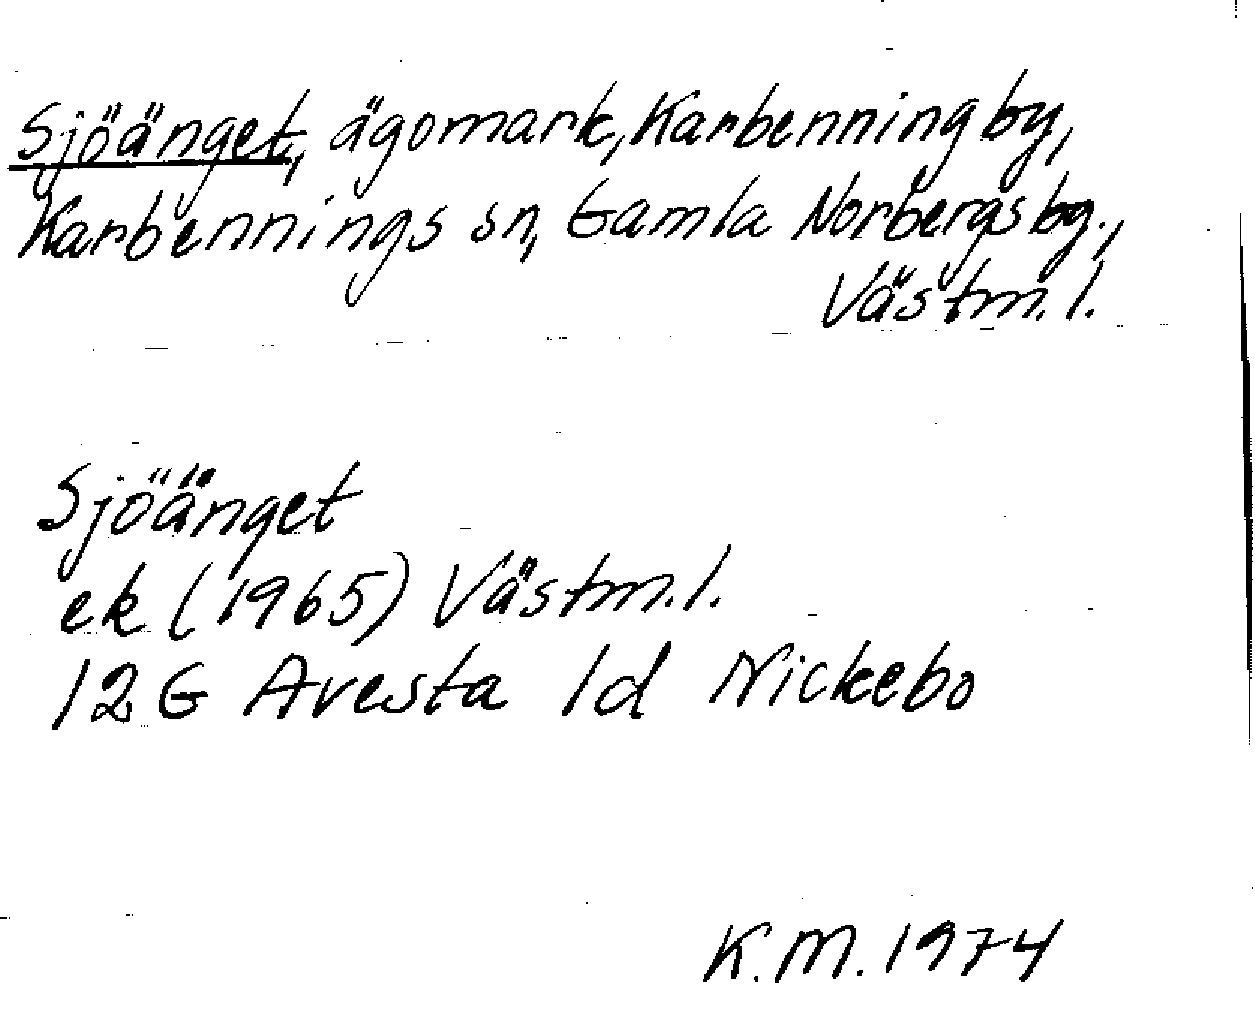 Sjöänget, ägomark, Karbenning by,
Karbennings sn, Gamla Norbergs bg.,
Västm. l.
Sjöänget
ek (1965) Västm. l.
12 G Avesta 1d Nickebo
K.M. 1974